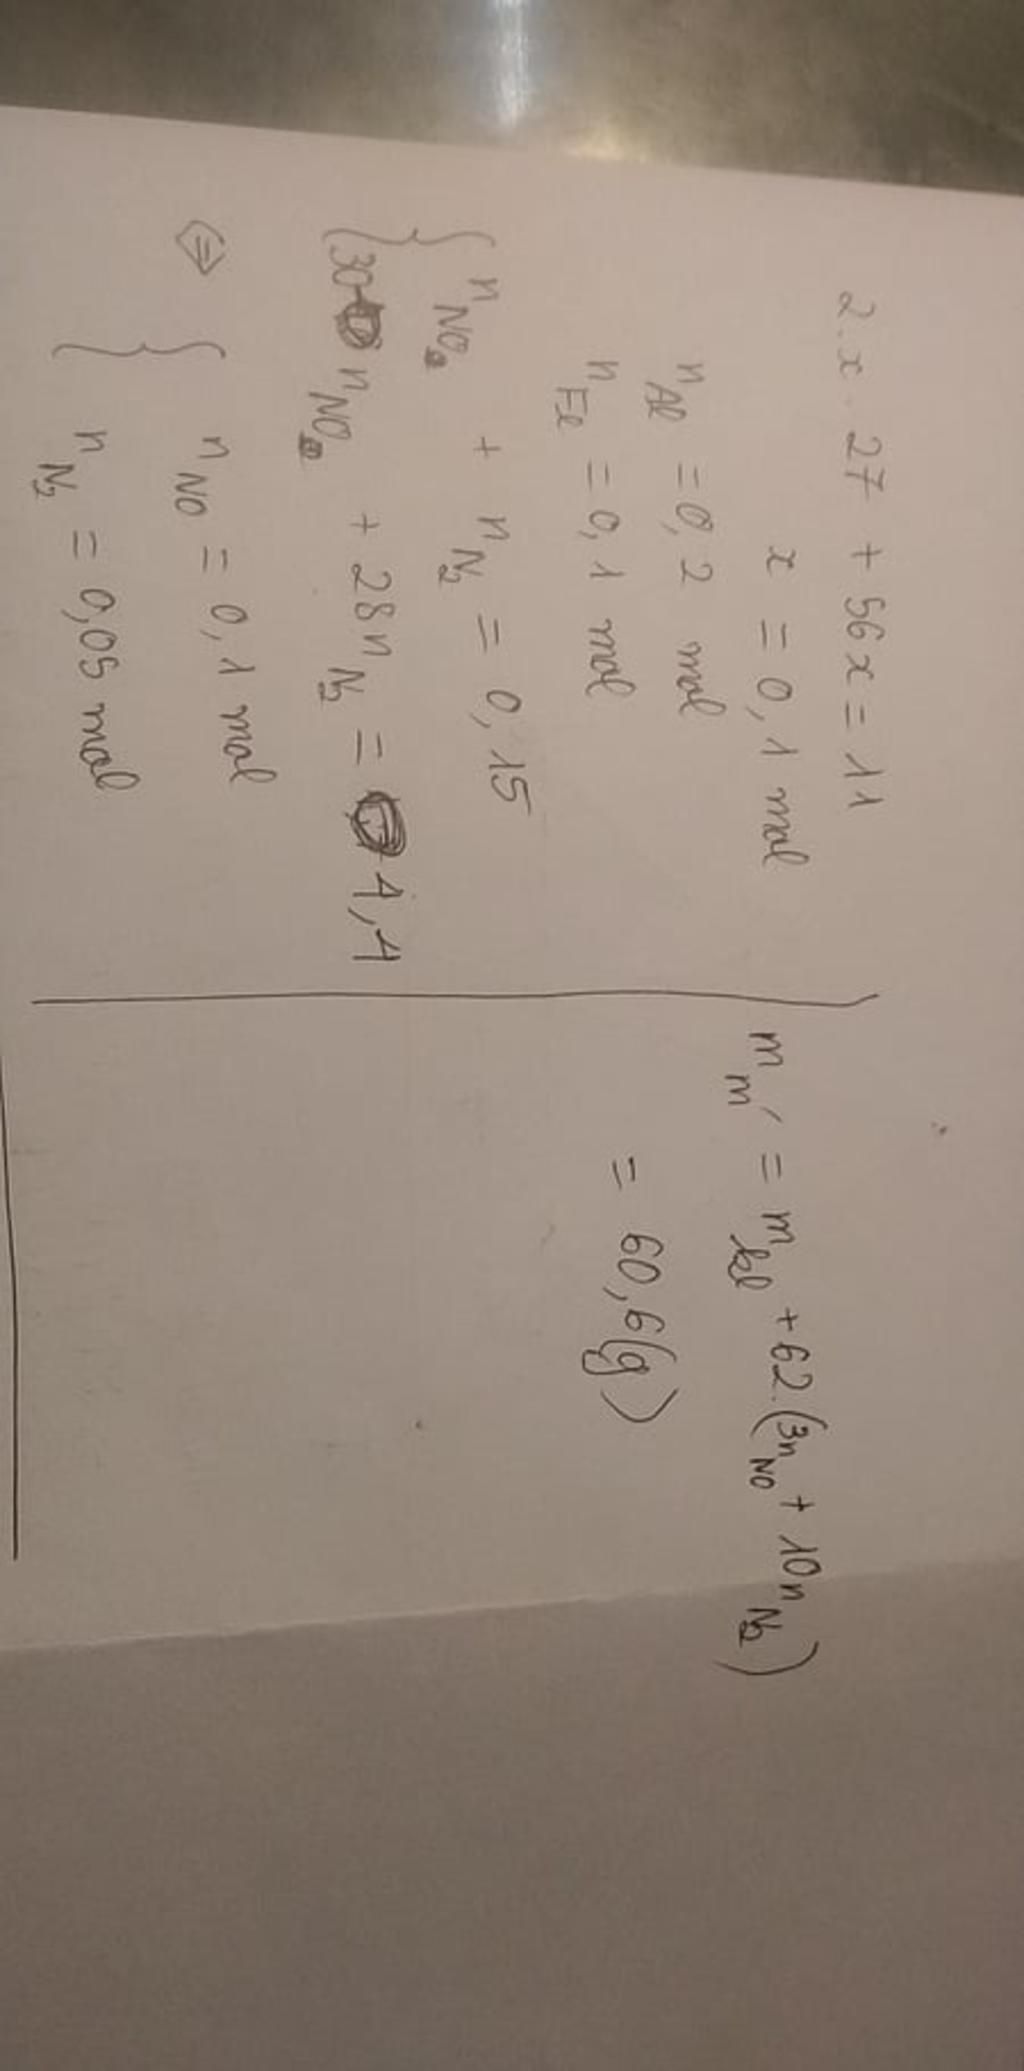 2.x.27 + 56x = 11
x = 0,1 mol
n Al = 0,2 mol
n Fe = 0,1 mol
{ n NO + n N2 = 0,15
30 n NO + 28 n N2 = 4,4
⇔ { n NO = 0,1 mol
n N2 = 0,05 mol
m m' = m kl + 62.(3n NO + 10n N2)
= 60,6(g)